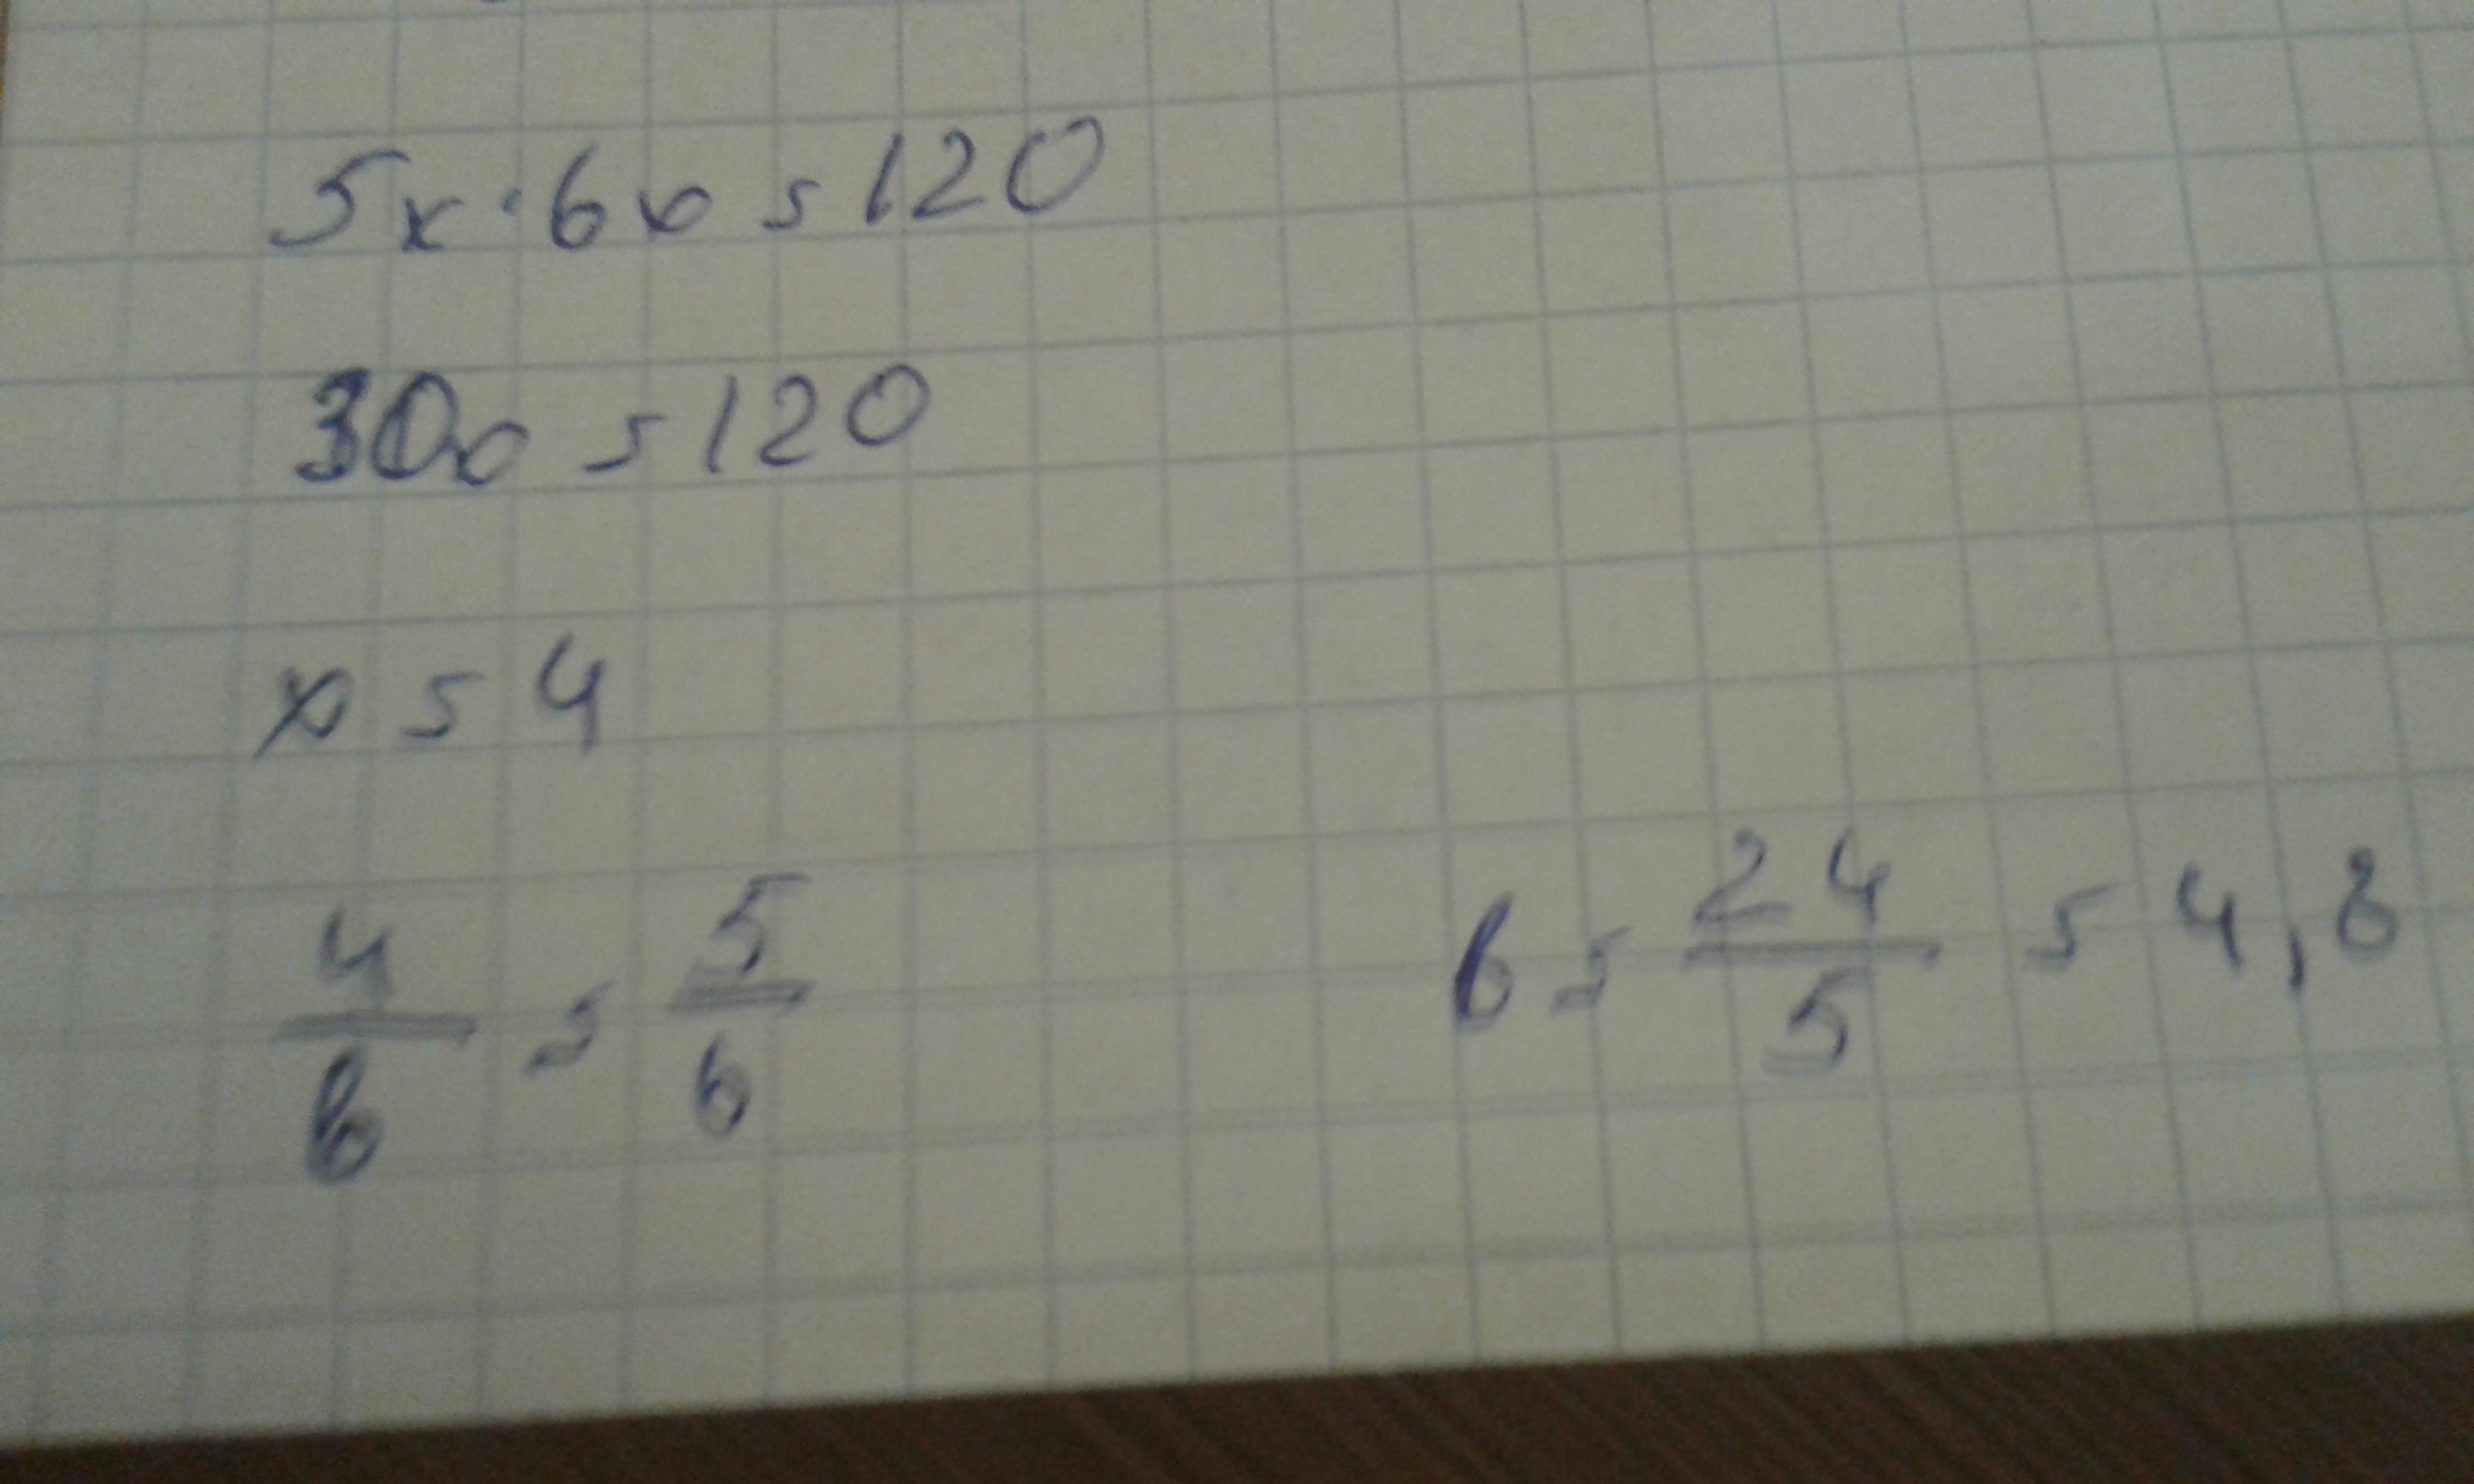 5x·6x=120
30x=120
x=4
4/b=5/6 b=24/5=4,8